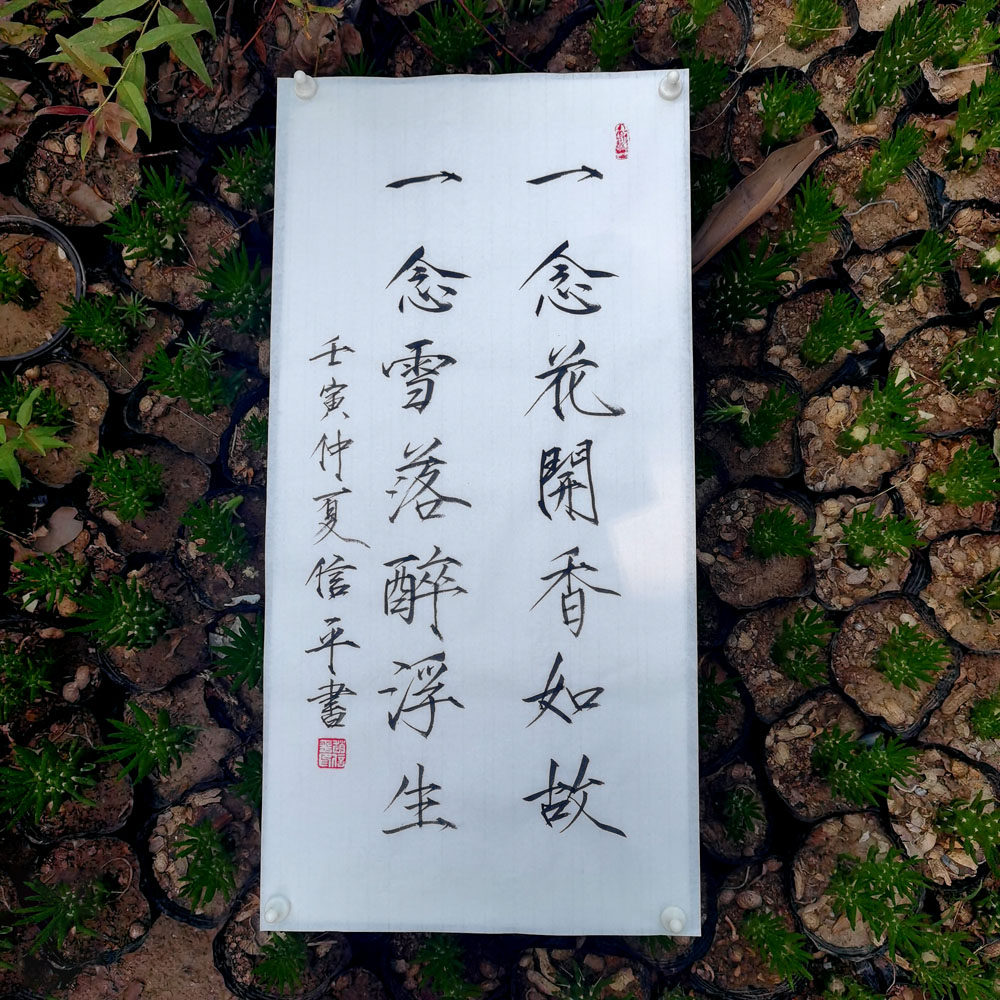 一念花開香如故
一念雪落醉浮生
壬寅仲夏信平書